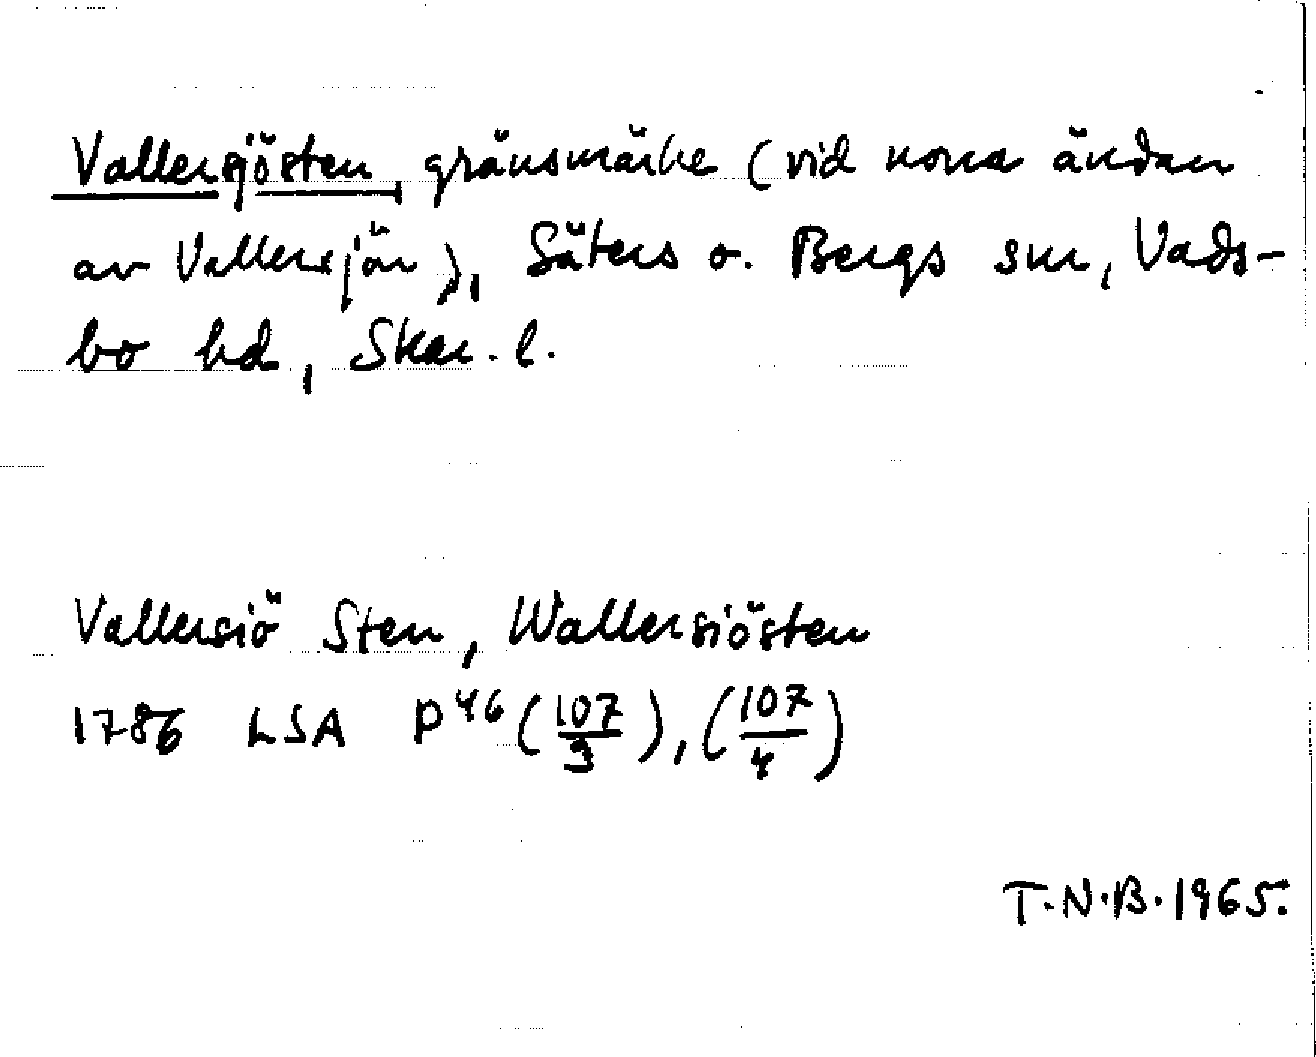 Vallersjösten, gränsmärke (vid norra ändan
av Vallersjön), Säters o. Bergs snr, Vads-
bo hd, Skar. l.
Vallersiö Sten, Wallersiösten
1786 LSA P46 (107/3), (107/4)
T.N.B. 1965.